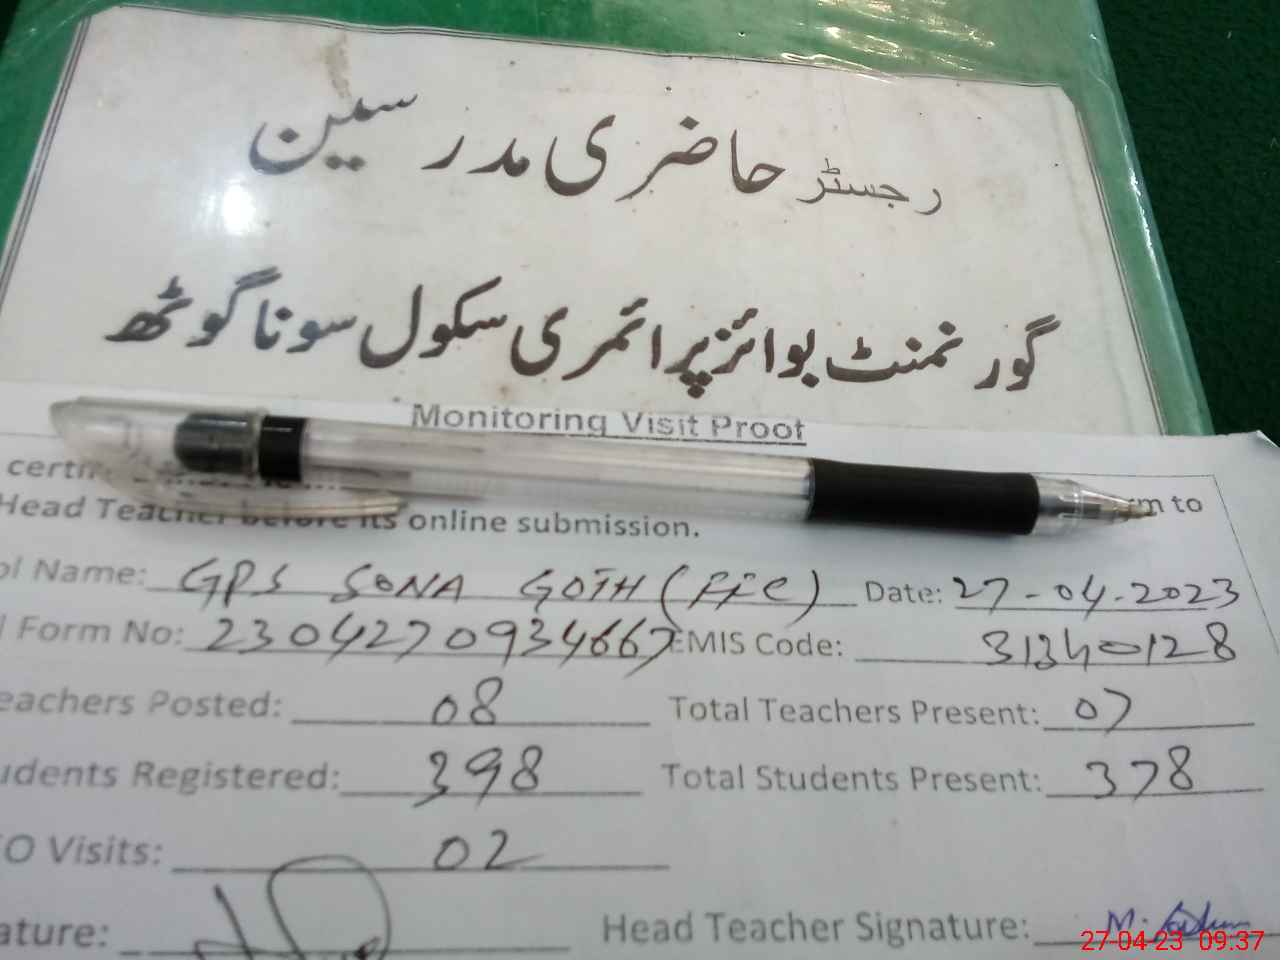 رجسٹر حاضری مدرسین
گورنمنٹ بوائز پرائمری سکول سونا گوٹھ
Monitoring Visit Proof
certi
rm to
Head Teacher before its online submission.
ol Name: GPS SONA GOTH (FFC) Date: 27-04-2023
l Form No: 2304270934667 EMIS Code: 31340128
eachers Posted: 08 Total Teachers Present: 07
udents Registered: 398 Total Students Present: 378
EO Visits: 02
ature: Head Teacher Signature: M.
27-04-23 09:37